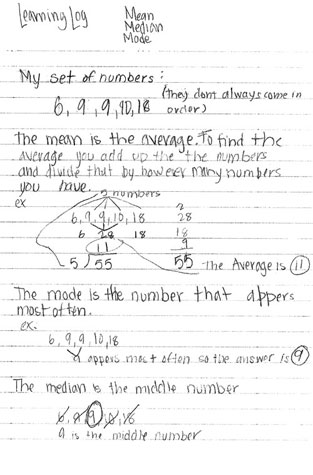 Learning Log
Mean
Median
Mode
My set of numbers:
(they dont always come in
order)
6, 9, 9, 10, 18
The mean is the average. To find the
average you add up the the numbers
and divide that by however many numbers
you have.
ex
5 numbers
6, 9, 9, 10, 18
6 28 18
11
5 / 55
2
28
18
9
55
The Average is 11
The mode is the number that appers
most often.
ex.
6, 9, 9, 10, 18
9 appers most often so the answer is 9
The median is the middle number
6, 9, 9, 10, 18
9 is the middle number